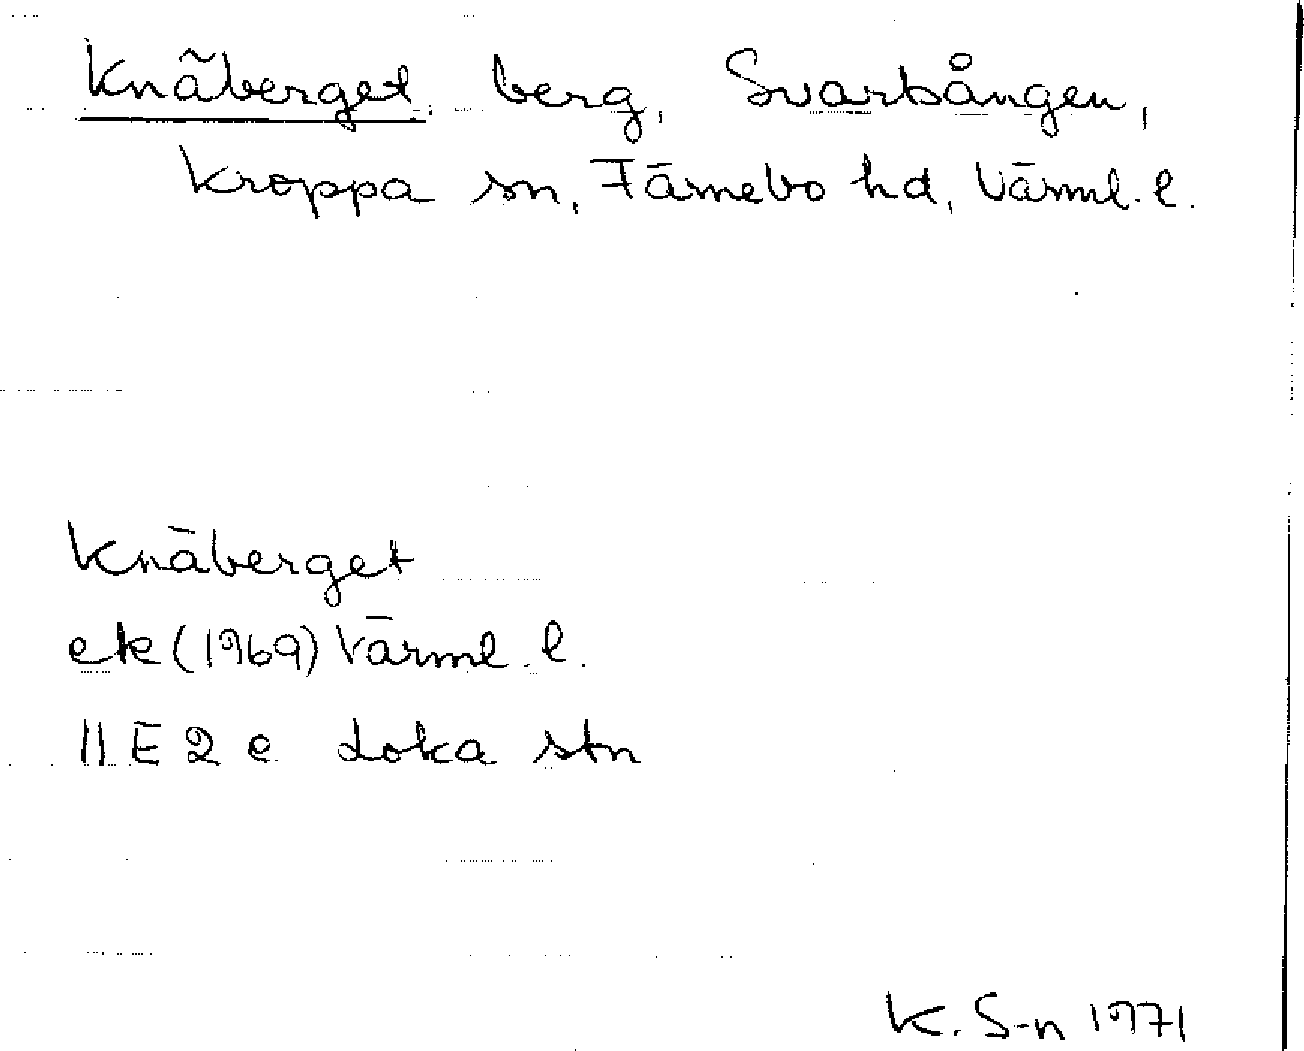 Knäberget berg, Svartsången,
Kroppa sn, Färnebo hd, Värml. l.
Knäberget
ek (1969) Värml. l.
11 E 2 e Loka stn
K. S-n 1971